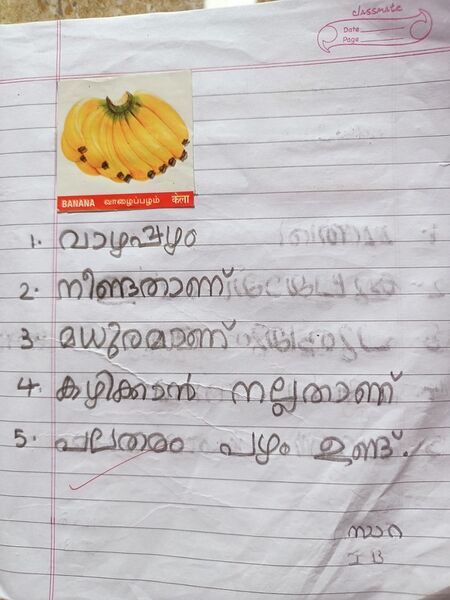 classmate
Date
Page
BANANA வாழைப்பழம் केला
1. വാഴപ്പഴം
2. നീണ്ടതാണ്
3 മധുരമാണ്
4. കഴിക്കാൻ നല്ലതാണ്
5. പലതരം പഴം ഉണ്ട്.
സാറ
I B